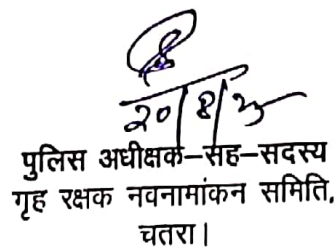 २०/8/२५
पुलिस अधीक्षक–सह–सदस्य
गृह रक्षक नवनामांकन समिति,
चतरा।